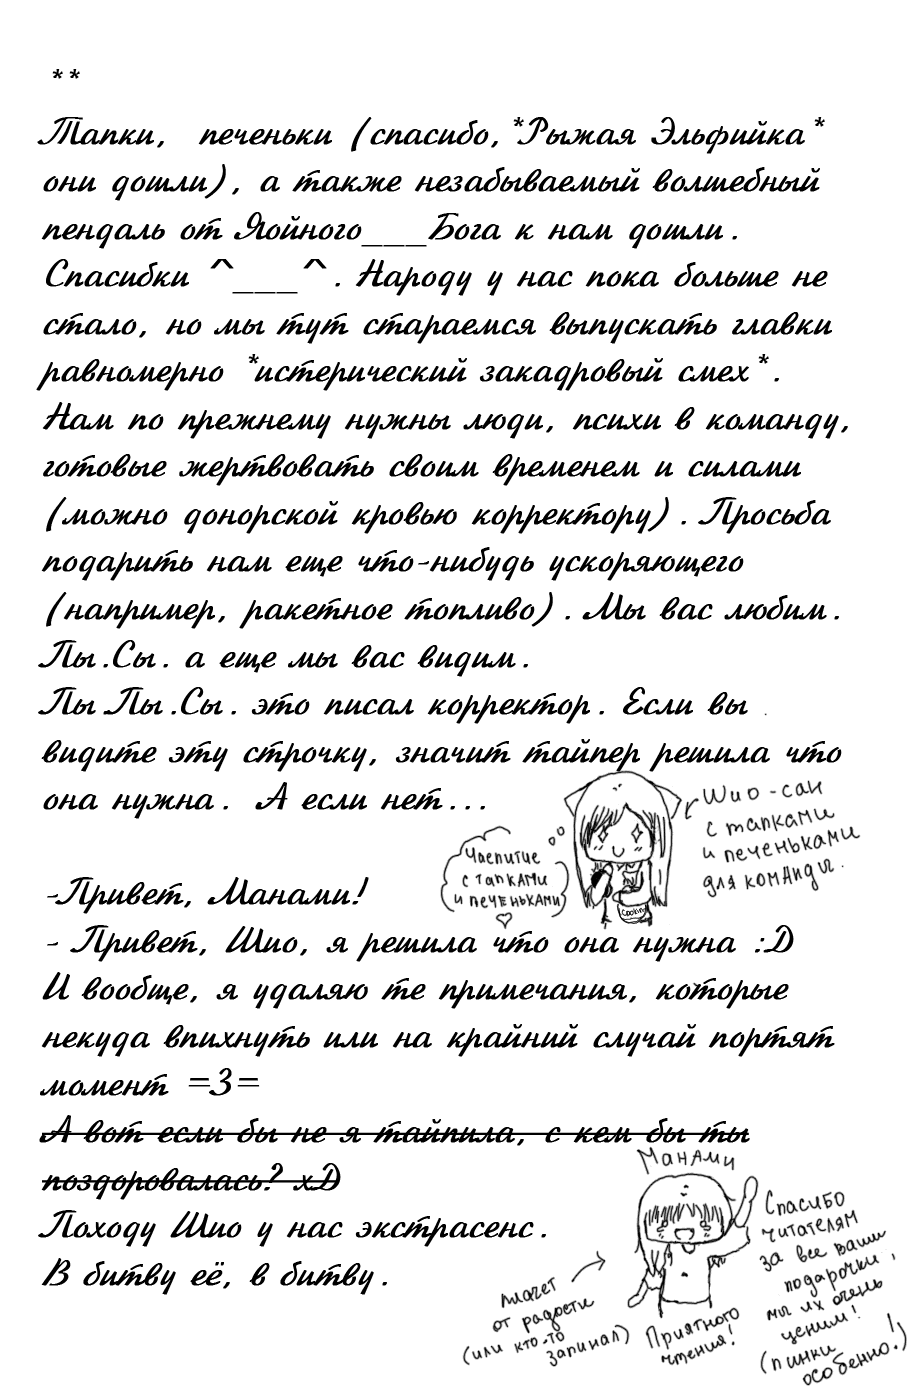 **
Тапки, печеньки (спасибо,*Рыжая Эльфийка*
они дошли), а также незабываемый волшебный
пендаль от Яойного___Бога к нам дошли.
Спасибки ^___^. Народу у нас пока больше не
стало, но мы тут стараемся выпускать главки
равномерно *истерический закадровый смех*.
Нам по прежнему нужны люди, психи в команду,
готовые жертвовать своим временем и силами
(можно донорской кровью корректору). Просьба
подарить нам еще что-нибудь ускоряющего
(например, ракетное топливо). Мы вас любим.
Пы.Сы. а еще мы вас видим.
Пы.Пы.Сы. это писал корректор. Если вы
видите эту строчку, значит тайпер решила что
она нужна. А если нет...
Шио-сан
с тапками
и печеньками
для команды.
Чаепитие
с тапками
и печеньками
♡
Cooking
-Привет, Манами!
- Привет, Шио, я решила что она нужна :D
И вообще, я удаляю те примечания, которые
некуда впихнуть или на крайний случай портят
момент =3=
А вот если бы не я тайпила, с кем бы ты
поздоровалась? xD
Походу Шио у нас экстрасенс.
В битву её, в битву.
Манами
плачет
от радости
(или кто-то
запинал)
Приятного
чтения!
Спасибо
читателям
за все ваши
подарочки,
мы их очень
ценим!
(пинки
особенно!)